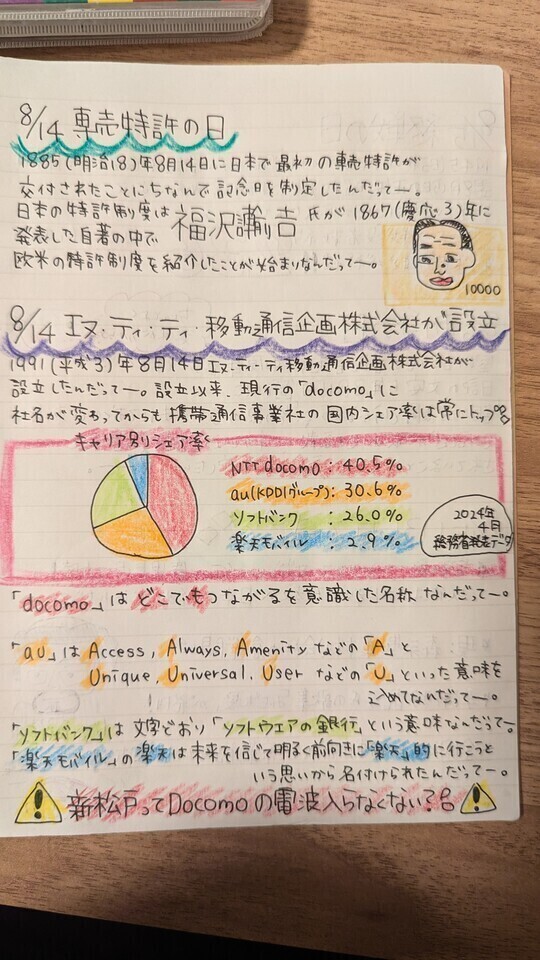 8/14 専売特許の日
1885(明治18)年8月14日に日本で最初の専売特許が
交付されたことにちなんで記念日を制定したんだってー。
日本の特許制度は福沢諭吉氏が1867(慶応3)年に
発表した自著の中で
欧米の特許制度を紹介したことが始まりなんだってー。
10000
8/14 エヌ・ティ・ティ・移動通信企画株式会社が設立
1991(平成3)年8月14日エヌ・ティ・ティ移動通信企画株式会社が
設立したんだってー。設立以来、現行の「docomo」に
社名が変わってからも携帯通信事業社の国内シェア率は常にトップ
キャリア別シェア率
NTT docomo：40.5%
au(KDDIグループ)：30.6%
ソフトバンク：26.0%
楽天モバイル：2.9%
2024年
4月
総務省発表データ
「docomo」はどこでもつながるを意識した名称なんだってー。
「au」はAccess, Always, Amenityなどの「A」と
Unique, Universal, Userなどの「U」といった意味を
こめてないだってー。
「ソフトバンク」は文字どおり「ソフトウェアの銀行」という意味なんだってー。
「楽天モバイル」の楽天は未来を信じて明るく前向きに「楽天」的に行こうと
いう思いから名付けられたんだってー。
新松戸ってDocomoの電波入らなくない?